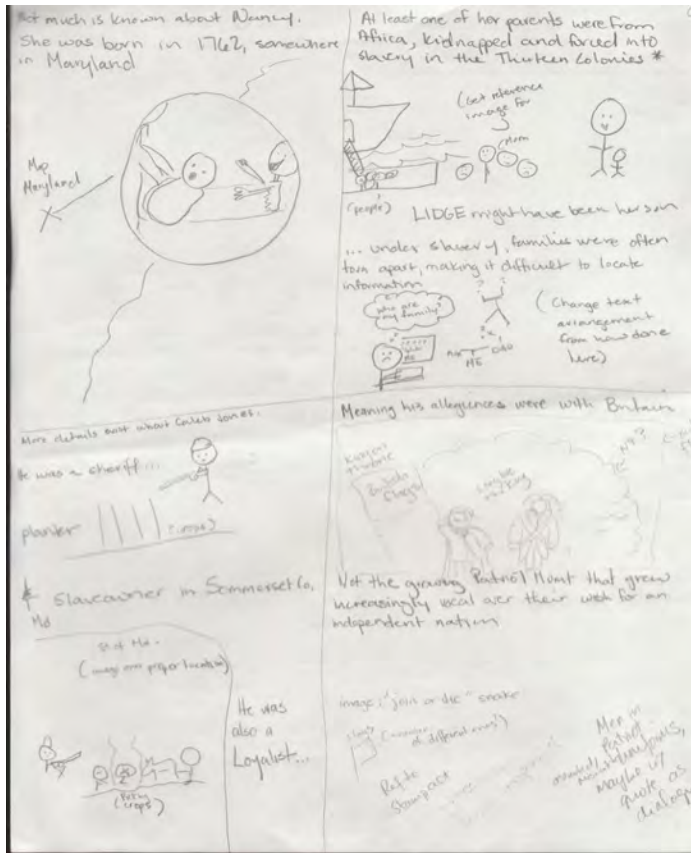 Not much is known about Nancy.
She was born in 1762, somewhere
in Maryland
Map
Maryland
At least one of her parents were from
Africa, kidnapped and forced into
slavery in the Thirteen Colonies *
(Get reference
image for
(Mom
(people)
LIDGE might have been her son
... under slavery, families were often
torn apart, making it difficult to locate
information
who are
my family?
? ?
ME
(Change text
arrangement
from how done
here)
More details exist about Caleb Jones.
He was a sheriff...
planter
(crops)
& Slaveowner in Sommerset Co,
Md
(image over proper location)
(crops)
He was
also a
Loyalist...
Meaning his allegiences were with Britain
Not the growing Patriot Mvmt that grew
increasingly vocal over their wish for an
independent nation
image: "join or die" snake
of different ones")
Stamp act
Men in
Patriot
maybe w/
quote as
dialogue